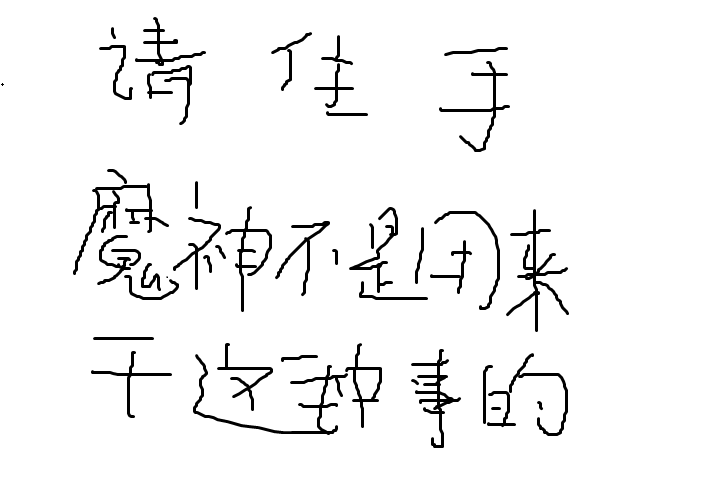 请住手
魔神不是用来
干这种事的